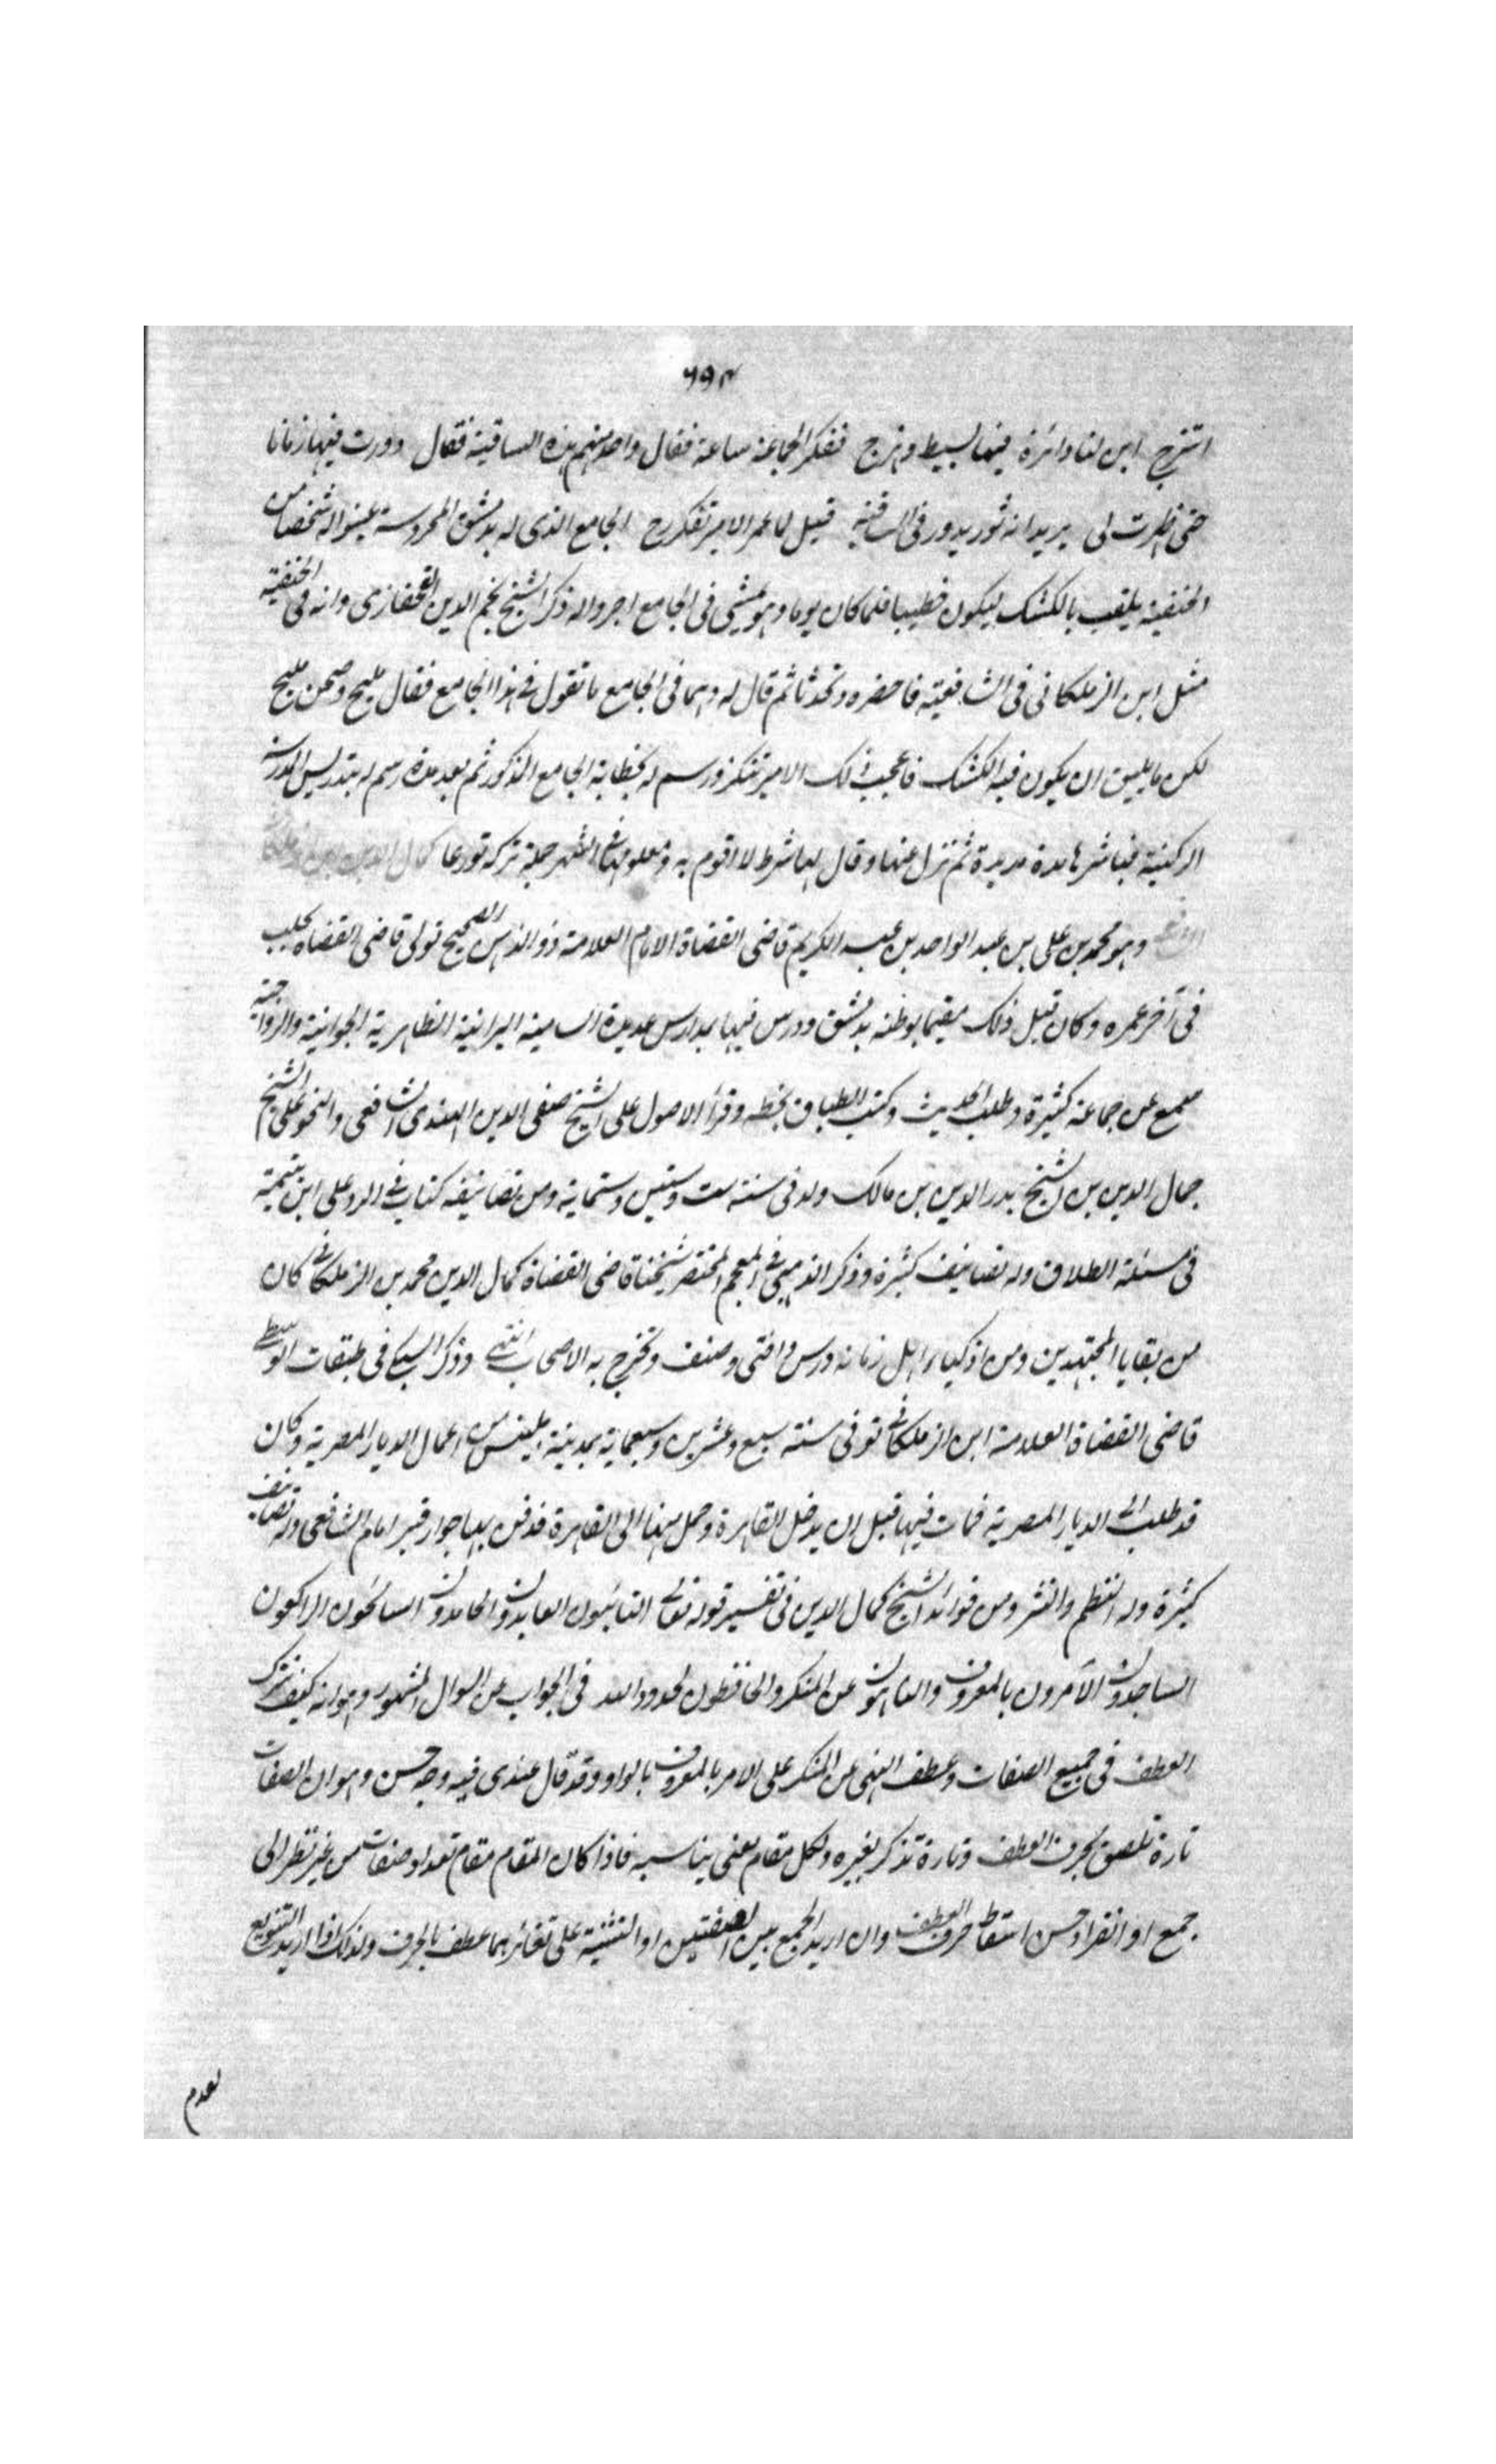 ٦٩٣
استخرج ابن لنا دائرة فيها بسيط وهزج ففكر الجماعة ساعة فقال واحد منهم هذه الساقية فقال دورت فيها زمانا
حتى ظهرت لى يريد انه ثور يدور فى الساقية قيل لما عمر الامير تنكز رح الجامع الذى له بدمشق المحروسة عينوا له شخصا من
الحنفية يلقب بالكشك ليكون خطيبا فلما كان يوما وهو يمشى فى الجامع اجروا له ذكر الشيخ نجم الدين القحفازى وانه فى الحنفية
مثل ابن الزملكانى فى الشافعية فاحضره وتحدثا ثم قال له وهما فى الجامع ما تقول فى هذا الجامع فقال مليح وصحن مليح
لكن ما يليق ان يكون فيه الكشك فاعجب ذلك الامير تنكز ورسم له بخطابة الجامع المذكور ثم بعد مدة رسم له بتدريس المدرسة
الركنية فباشرها مدة مديدة ثم نزل عنها وقال لها شرط لا اقوم به ومعلومها فى الشهر جملة تركه تورعا كمال الدين ابن الزملكانى
وهو محمد بن على بن عبد الواحد بن عبد الكريم قاضى القضاة الامام العلامة ذو الذهن الصحيح تولى قاضى القضاة بحلب
فى آخر عمره وكان قبل ذلك مقيما بوطنه بدمشق ودرس فيها بمدارس عديدة الشامية البرانية الظاهرية الجوانية والرواحية
سمع عن جماعة كثيرة وطلب الحديث وكتب الطباق بخطه وقرأ الاصول على الشيخ صفى الدين الهندى الشافعى والنحو على الشيخ
جمال الدين بن الشيخ بدر الدين بن مالك ولد فى سنة ست وستين وستماية ومن تصانيفه كتاب فى الرد على ابن تيمية
فى مسئلة الطلاق وله تصانيف كثيرة وذكر الذهبى فى المعجم المختصر شيخنا قاضى القضاة كمال الدين محمد بن الزملكانى كان
من بقايا المجتهدين ومن اذكياء اهل زمانه درس وافتى وصنف وتخرج به الاصحاب انتهى وذكر السبكى فى طبقات الوسطى
قاضى القضاة العلامة ابن الزملكانى توفى سنة سبع وعشرين وسبعماية بمدينة بلبيس من اعمال الديار المصرية وكان
قد طلب الى الديار المصرية فمات فيها قبل ان يدخل القاهرة وحمل منها الى القاهرة فدفن بها جوار قبر امام الشافعى وله تصانيف
كثيرة وله النظم والنثر ومن فوائد الشيخ كمال الدين فى تفسير قوله تعالى التائبون العابدون الحامدون السائحون الراكعون
الساجدون الآمرون بالمعروف والناهون عن المنكر والحافظون لحدود الله فى الجواب عن السوال المشهور وهو انه كيف ترك
العطف فى جميع الصفات وعطف النهى عن المنكر على الامر بالمعروف بالواو وقد قال عندى فيه وجه حسن وهو ان الصفات
تارة تلصق بحرف العطف وتارة تذكر بغيره ولكل مقام معنى يناسبه فاذا كان المقام مقام تعداد صفات من غير نظر الى
جمع او انفراد حسن اسقاط حرف العطف وان اريد الجمع بين الصفتين او التثنية على تغائرهما عطف بالحرف ولذلك اذا اريد التنويع
بعدم